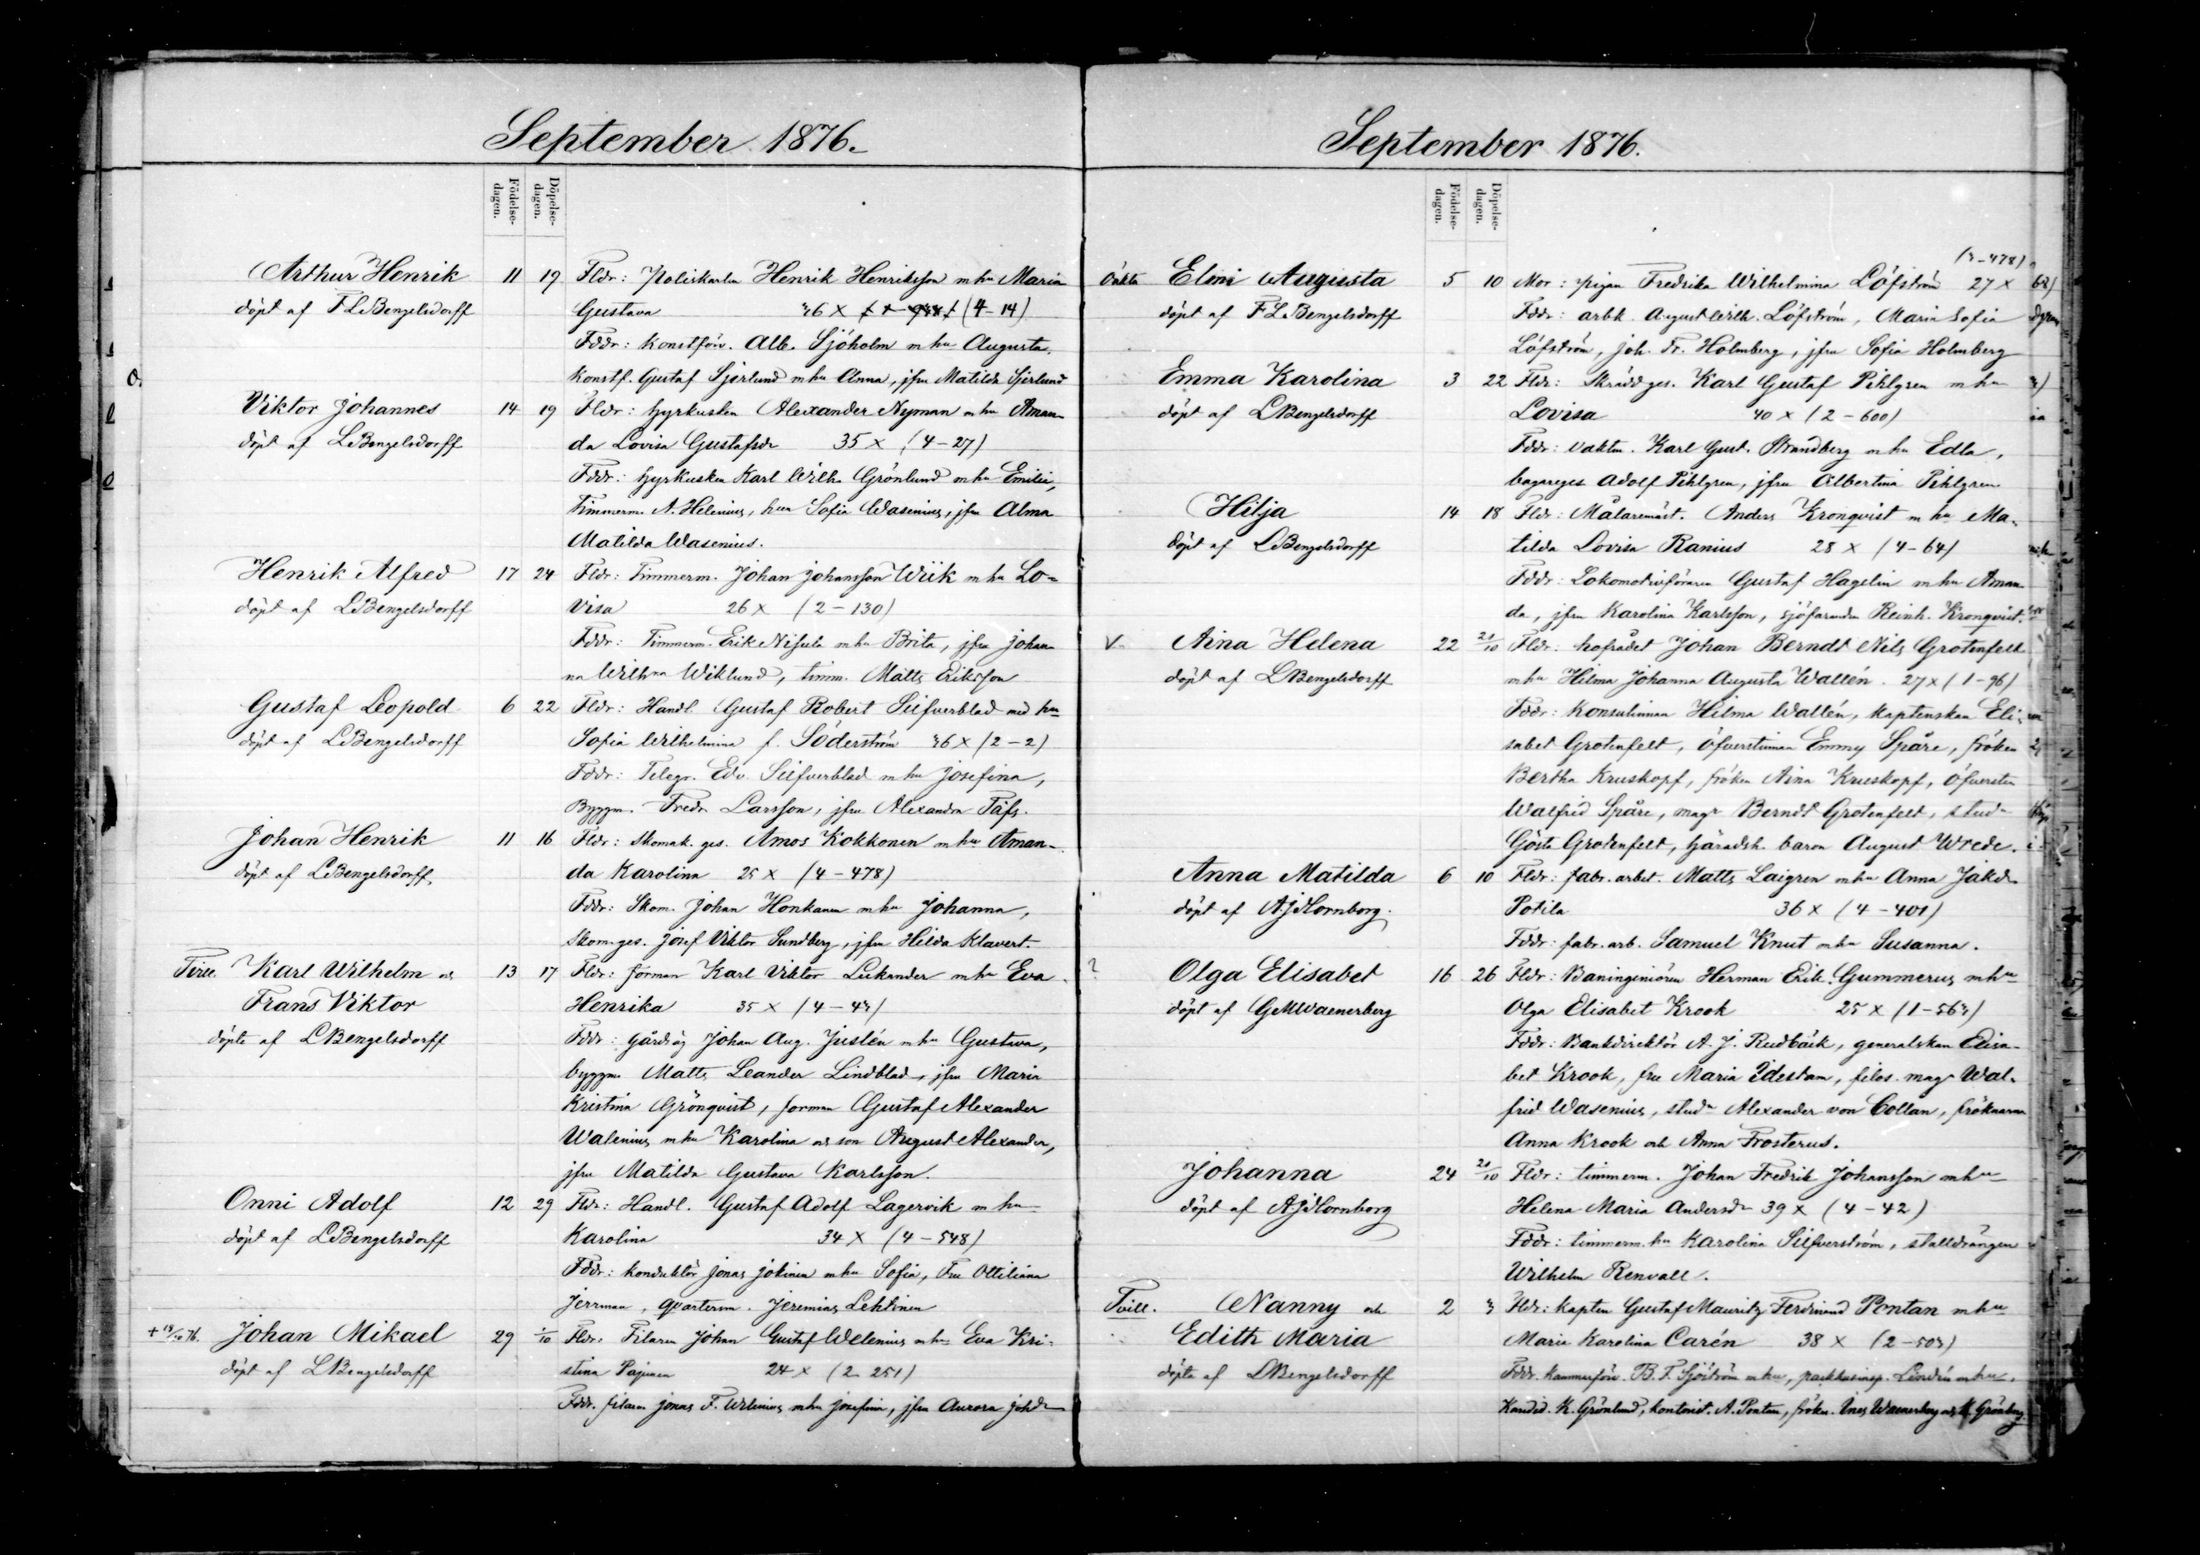 September 1876.
Födelse-dagen.
Döpelse-dagen.
Arthur Henrik 11 19 Fldr: Poliskarlen Henrik Henriksson m hu Maria
döpt af F L Bengelsdorff Gustava 36 × (4-14)
Fddr: Konstförv. Alb. Sjöholm m hu Augusta,
Konstf. Gustaf Sjerlund m hu Anna, jfru Matilda Sjerlund
Viktor Johannes 14 19 Fldr: hyrkusken Alexander Nyman m hu Aman-
döpt af LBengelsdorff da Lovisa Gustafsdr 35 × (4-27)
Fddr: hyrkusken Karl Wilh. Grönlund m hu Emilie,
Timmerm. A. Helenius, hun Sofia Wasenius, jfru Alma
Matilda Wasenius.
Henrik Alfred 17 24 Fldr: Timmerm. Johan Johansson Wiik m hu Lo-
döpt af LBengelsdorff visa 26 × (2-130)
Fddr: Timmerm. Erik Nisula m hu Brita, jfru Johan-
na Wilhna Wiklund, timm. Matts Eriksson
Gustaf Leopold 6 22 Fldr: Handl. Gustaf Robert Silfverblad med hu
döpt af LBengelsdorff Sofia Wilhelmina f. Söderström 36 × (2-2)
Fddr: Telegr. Edv. Silfverblad m hu Josefina,
Byggm. Fredr. Larsson, jfru Alexandra
Johan Henrik 11 16 Fldr: Skomak. ges. Amos Kokkonen m hu Aman-
döpt af LBengelsdorff. da Karolina 25 × (4-478)
Fddr: Skom. Johan Honkanen m hu Johanna,
Skom. ges. Josef Viktor Sundberg, jfru Hilda Klavert.
Karl Wilhelm o 13 17 Fldr: forman Karl Viktor Lukander m hu Eva
Frans Viktor Henrika 35 × (4-43)
döpte af LBengelsdorff Fddr: gårdsäg Johan Aug. Juslén m hu Gustava,
byggm Matts Leander Lindblad, jfru Maria
Kristina Grönqvist, forman Gustaf Alexander
Walenius m hu Karolina o son August Alexander,
jfru Matilda Gustava Karlsson.
Onni Adolf 12 29 Fldr: Handl. Gustaf Adolf Lagervik m hu
döpt af LBengelsdorff Karolina 34 × (4-548)
Fddr: konduktör Jonas Jokinen m hu Sofia, Fru Ottiliana
Jerrman, qvarterm. Jeremias Lehtinen
+ 18/10 76. Johan Mikael 29 1/10 Fldr: Filaren Johan Gustaf Welenius m hu Eva Kri-
döpt af LBengelsdorff stina Pajunen 24 × (2 251)
Fddr. filaren Jonas F. Welenius m hu Josefina, jfru Aurora Johdr
September 1876.
Födelse-dagen.
Döpelse-dagen.
(3-478)
Oäkta Elmi Augusta 5 10 Mor: pigan Fredrika Wilhelmina Löfström 27 ×
döpt af F L Bengelsdorff Fddr: arbk. August Wilh. Löfström, Maria Sofia
Löfström, Joh. Fr. Holmberg, jfru Sofia Holmberg
Emma Karolina 3 22 Fldr: Skrädd ges. Karl Gustaf Pihlgren m hu
döpt af LBengelsdorff Lovisa 40 × (2-600)
Fddr: vaktm. Karl Gust. Strandberg m hu Edla,
bagareges Adolf Pihlgren, jfru Albertina Pihlgren
Hilja 14 18 Fldr: Målaremäst. Anders Kronqvist m hu Ma-
döpt af LBengelsdorff tilda Lovisa Ranius 28 × (4-64)
Fddr: Lokomotivföraren Gustaf Hagelin m hu Aman-
da, jfru Karolina Karlsson, sjöfaranden Reinh. Kronqvist.
Aina Helena 22 21/10 Fldr: hofrådet Johan Berndt Nils Grotenfelt
döpt af LBengelsdorff m hu Hilma Johanna Augusta Wallén. 27 × (1-96)
Fddr: Konsulinnan Hilma Wallén, kaptenskan Eli-
sabet Grotenfelt, öfverstinnan Emmy Spåre, fröken
Bertha Kruskopf, fröken Aina Kruskopf, öfversten
Walfrid Spåre, magr Berndt Grotenfelt, stud.
Gösta Grotenfelt, häradsh. baron August Wrede.
Anna Matilda 6 10 Fldr: fabr. arbet. Matts Laigren m hu Anna Jakdr
döpt af AJHornborg. Potila 36 × (4-401)
Fddr: fabr. arb. Samuel Knut m hu Susanna.
? Olga Elisabet 16 26 Fldr: Baningeniören Herman Erik Gummerus m hu
döpt af GMWaenerberg Olga Elisabet Krook 25 × (1-563)
Fddr: Bankdirektör A. J. Rudbäck, generalskan Elisa-
bet Krook, fru Maria Idestam, filos. magr Wal-
frid Wasenius, stud. Alexander von Collan, fröknarna
Anna Krook och Anna Frosterus.
Johanna 24 21/10 Fldr: timmerm. Johan Fredrik Johansson m hu
döpt af AJHornborg Helena Maria Andersdr 39 × (4-42)
Fddr: timmerm. hu Karolina Silfverström, stalldrängen
Wilhelm Renvall.
Tvill. Nanny och 2 3 Fldr: kapten Gustaf Mauritz Ferdinand Pontan m hu
Edith Maria Maria Karolina Carén 38 × (2-503)
döpte af LBengelsdorff Fddr. Kammerförv. B. F. Sjöström m hu, packhusinsp. Lindén m hu,
Kandid. K. Grönlund, kontorist. A. Pontan, frökn. Ines Waenerberg o. Grönberg